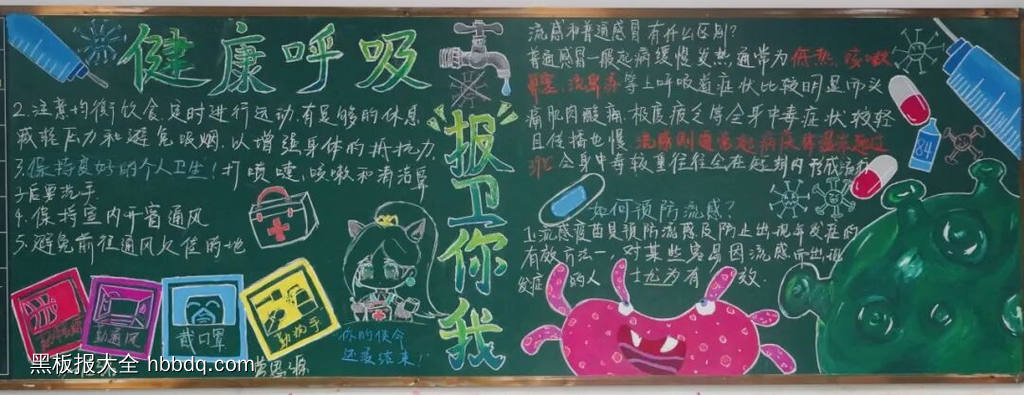 健康呼吸
报卫你我
流感和普通感冒有什么区别?
普通感冒一般起病缓慢发热通常为低热、咳嗽
鼻塞、流鼻涕等上呼吸道症状比较明显而头
痛肌肉酸痛、极度疲乏等全身中毒症状较轻
且传播也慢 流感则通常起病急体温常超过
39℃全身中毒较重往往会在短期内形成流行
如何预防流感?
1.流感疫苗是预防流感及防止出现并发症的
有效方法一,对某些容易因流感而出现
症的人士尤为有效.
2.注意均衡饮食、定时进行运动,有足够的休息
减轻压力和避免吸烟.以增强身体的抵抗力.
3.保持良好的个人卫生!打喷嚏,咳嗽和清洁鼻
子后要洗手.
4.保持室内开窗通风
5.避免前往通风欠佳的地
勤通风
戴口罩
勤洗手
你的使命
还没结束!
84
黑板报大全 hbbdq.com